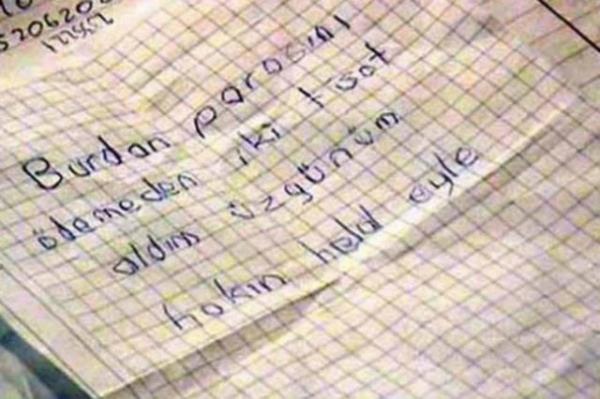 520620
Burdan parasını
ödemeden iki tisot
aldım üzgünüm
hakın helal eyle